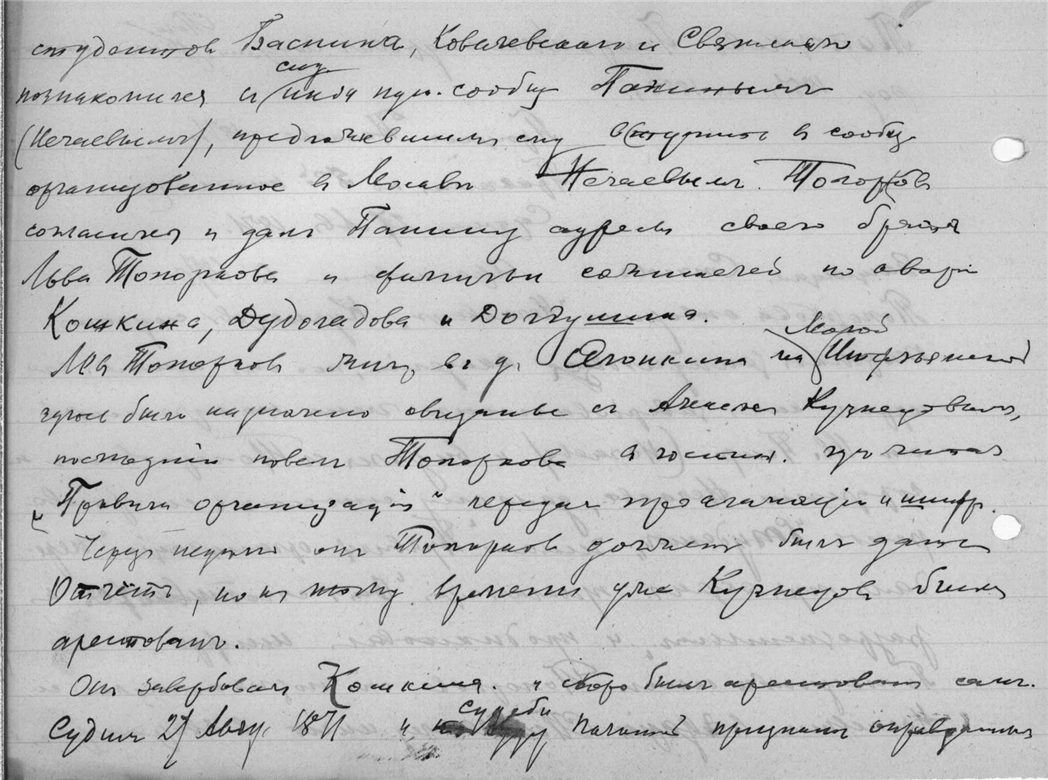 студентов Баснина, Ковачевского и Святского
познакомился с Паниным
(Нечаевым), предложившим ему вступить в сообщ.
организованное в Москве Нечаевым. Топорков
согласился и дал Панину адреса своего брата
Льва Топоркова и фамилии по
Кошкина, Дудоладова и Долгушина.
Лев Топорков жил в д. на Малой
здесь было назначено свиданье с Алексеем Кузнецовым,
последний повел Топоркова в гостин. где читал
„Правила организации“ передал прокламации и шифр.
Через неделю он Топорков должен был дать
отчетъ, но к тому времени уже Кузнецов был
арестованъ.
Он завербовал Кошкина и скоро был арестован сам.
Судим 27 Авг. 1871 и судеб. палатой признан оправданным